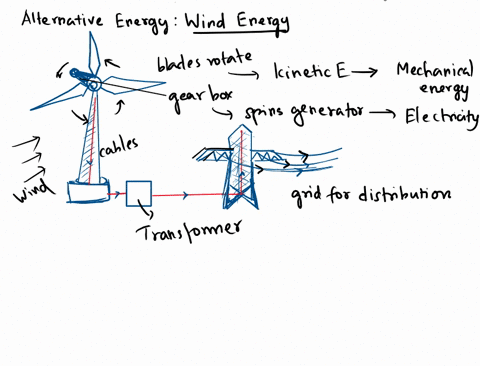 Alternative Energy: Wind Energy
blades rotate → kinetic E → Mechanical energy
gear box → spins generator → Electricity
cables
wind
grid for distribution
Transformer